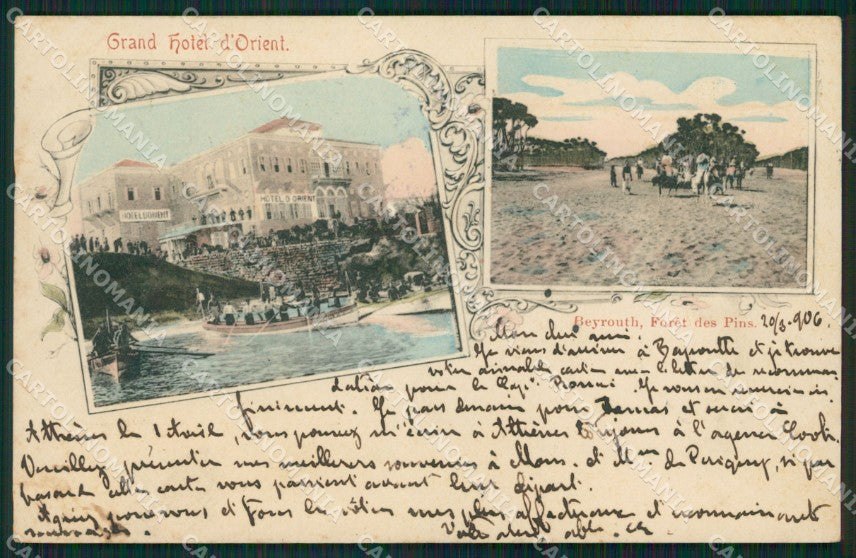 Grand Hotel d'Orient.
HOTEL D'ORIENT
HOTEL D'ORIENT
Beyrouth, Forêt des Pins. 20/3. 906
Mon cher ami.
Je viens d'arriver à Beyrouth et je trouve
votre aimable carte une lettre de recomman
dation pour le Capⁿ. Je vous en remercie in
finiment. Je pars demain pour Damas et serai à
Athènes le 1 Avril, vous pouvez m'écrire à Athènes toujours à l'agence Cook.
Veuillez présenter mes meilleurs souvenirs à Mons. et Mme de Perigny, si par
hasard cette carte vous parvient avant leur départ.
Agréez pour vous et tous les vôtres mes plus affectueux et reconnaissants
souvenirs. Votre
CARTOLINOMANIA